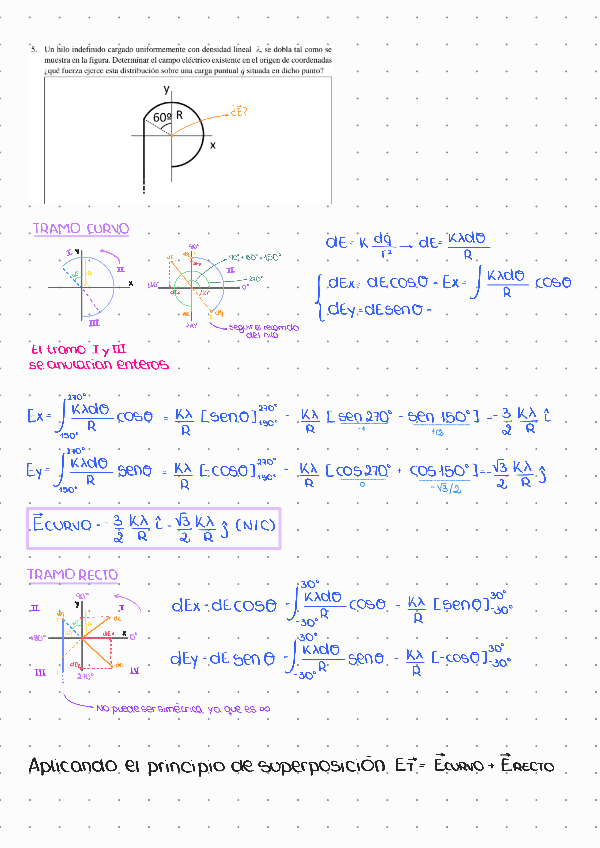 5. Un hilo indefinido cargado uniformemente con densidad lineal λ, se dobla tal como se
muestra en la figura. Determinar el campo eléctrico existente en el origen de coordenadas
¿qué fuerza ejerce esta distribución sobre una carga puntual q situada en dicho punto?
y
60º R
¿E?
x
TRAMO CURVO
I y
II
x
III
90°
90°+60°=150°
II
270°
180°
0°
dEx
270°
seguir el recorrido
del hilo
dE = K dq/r² → dE = Kλdθ/R
dEx = dE cosθ - Ex = ∫ Kλdθ/R cosθ
dEy = dE senθ -
El tramo I y III
se anularían enteros
Ex = ∫₁₅₀°²⁷⁰° Kλdθ/R cosθ = Kλ/R [senθ]₁₅₀°²⁷⁰° - Kλ/R [sen 270° - sen 150°] - - 3/2 Kλ/R î
-1
1/2
Ey = ∫₁₅₀°²⁷⁰° Kλdθ/R senθ = Kλ/R [-cosθ]₁₅₀°²⁷⁰° - Kλ/R [cos 270° + cos 150°] = - √3/2 Kλ/R ĵ
0
-√3/2
E⃗CURVO - - 3/2 Kλ/R î - √3/2 Kλ/R ĵ (N/C)
TRAMO RECTO
II
90°
y
I
dq
dE
180°
dEx
x
0°
III
dEy
270°
dE
IV
No puede ser simétrica, ya que es ∞
dEx - dE cosθ - ∫₋₃₀°³⁰° Kλdθ/R cosθ - Kλ/R [senθ]₋₃₀°³⁰°
dEy - dE senθ - ∫₋₃₀°³⁰° Kλdθ/R senθ - Kλ/R [-cosθ]₋₃₀°³⁰°
Aplicando el principio de superposición E⃗T = E⃗CURVO + E⃗RECTO